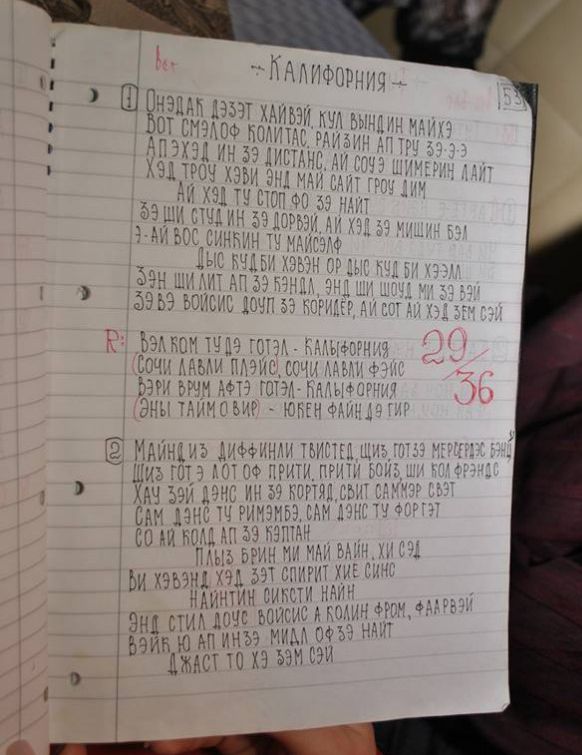 ÷ КАЛИФОРНИЯ ÷
53
1 ОНЭДАК ДЭЗЭТ ХАЙВЭЙ, КУЛ ВЫНДИН МАЙХЭ
ВОТ СМЭЛОФ КОЛИТАС, РАЙЗИН АП ТРУ ЗЭ-Э-Э
АПЭХЭД ИН ЗЭ ДИСТАНС, АЙ СОУЭ ШИМЕРИН ЛАЙТ
ХЭД ТРОУ ХЭВИ ЭНД МАЙ САЙТ ГРОУ ДИМ
АЙ ХЭД ТУ СТОП ФО ЗЭ НАЙТ
ЗЭ ШИ СТУД ИН ЗЭ ДОРВЭЙ, АЙ ХЭД ЗЭ МИШИН БЭЛ
Э-АЙ ВОС СИНКИН ТУ МАЙСЭЛФ
ДЫС КУД БИ ХЭВЭН ОР ДЫС КУД БИ ХЭЭЛЛ
ЗЭН ШИ ЛИТ АП ЗЭ КЭНДЛ, ЭНД ШИ ШОУД МИ ЗЭ ВЭЙ
ЗЭВЭ ВОЙСИС ДОУП ЗЭ КОРИДЕР, АЙ СОТ АЙ ХЭД ЗЕМ СЭЙ
R: ВЭЛКОМ ТУ ДЭ ГОТЭЛ - КАЛЫФОРНИЯ
(СОЧИ ЛАВЛИ ПЛЭЙС), СОЧИ ЛАВЛИ ФЭЙС
ВЭРИ ВРУМ АФТЭ ГОТЕЛ - КАЛЫФОРНИЯ
(ЭНЫ ТАЙМ О ВИР) - ЮКЕН ФАЙН ДЭ ГИР
29/36
2 МАЙНД ИЗ ДИФФИНЛИ ТВИСТЕД, ЩИЗ ГОТ ЗЭ МЕРСЕРДЭС БЭНЦ
ЩИЗ ГОТ Э ЛОТ ОФ ПРИТИ, ПРИТИ БОЙЗ, ШИ КОЛ ФРЭНДС
ХАУ ЗЭЙ ДЭНС ИН ЗЭ КОРТЯД, СВИТ САММЭР СВЭТ
САМ ДЭНС ТУ РИМЭМБЭ, САМ ДЭНС ТУ ФОРГЭТ
СО АЙ КОЛД АП ЗЭ КЭПТАН
ПЛЫЗ БРИН МИ МАЙ ВАЙН, ХИ СЭД
ВИ ХЭВЭНД ХЭД ЗЭТ СПИРИТ ХИЕ СИНС
НАЙНТИН СИКСТИ НАЙН
ЭНД СТИЛ ДОУС ВОЙСИС А КОЛИН ФРОМ, ФААРВЭЙ
ВЭЙК Ю АП ИН ЗЭ МИДЛ ОФ ЗЭ НАЙТ
ДЖАСТ ТО ХЭ ЗЭМ СЭЙ